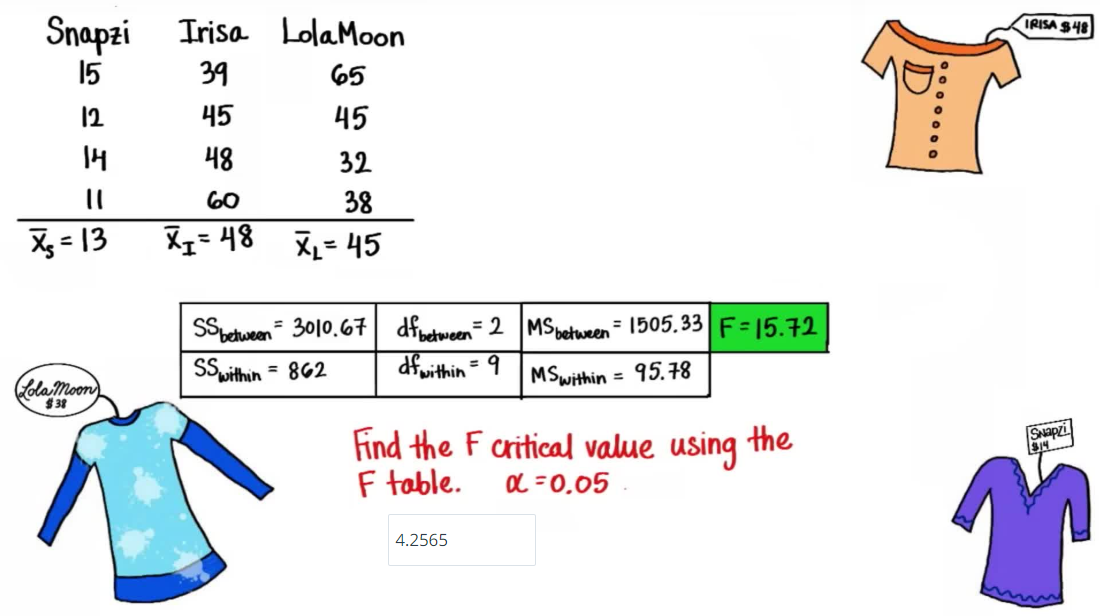 Snapzi Irisa LolaMoon
15 39 65
12 45 45
14 48 32
11 60 38
x̄S = 13 x̄I = 48 x̄L = 45
IRISA $48
SSbetween = 3010.67 dfbetween = 2 MSbetween = 1505.33 F = 15.72
SSwithin = 862 dfwithin = 9 MSwithin = 95.78
LolaMoon
$38
Find the F critical value using the
F table. α = 0.05
4.2565
Snapzi
$14